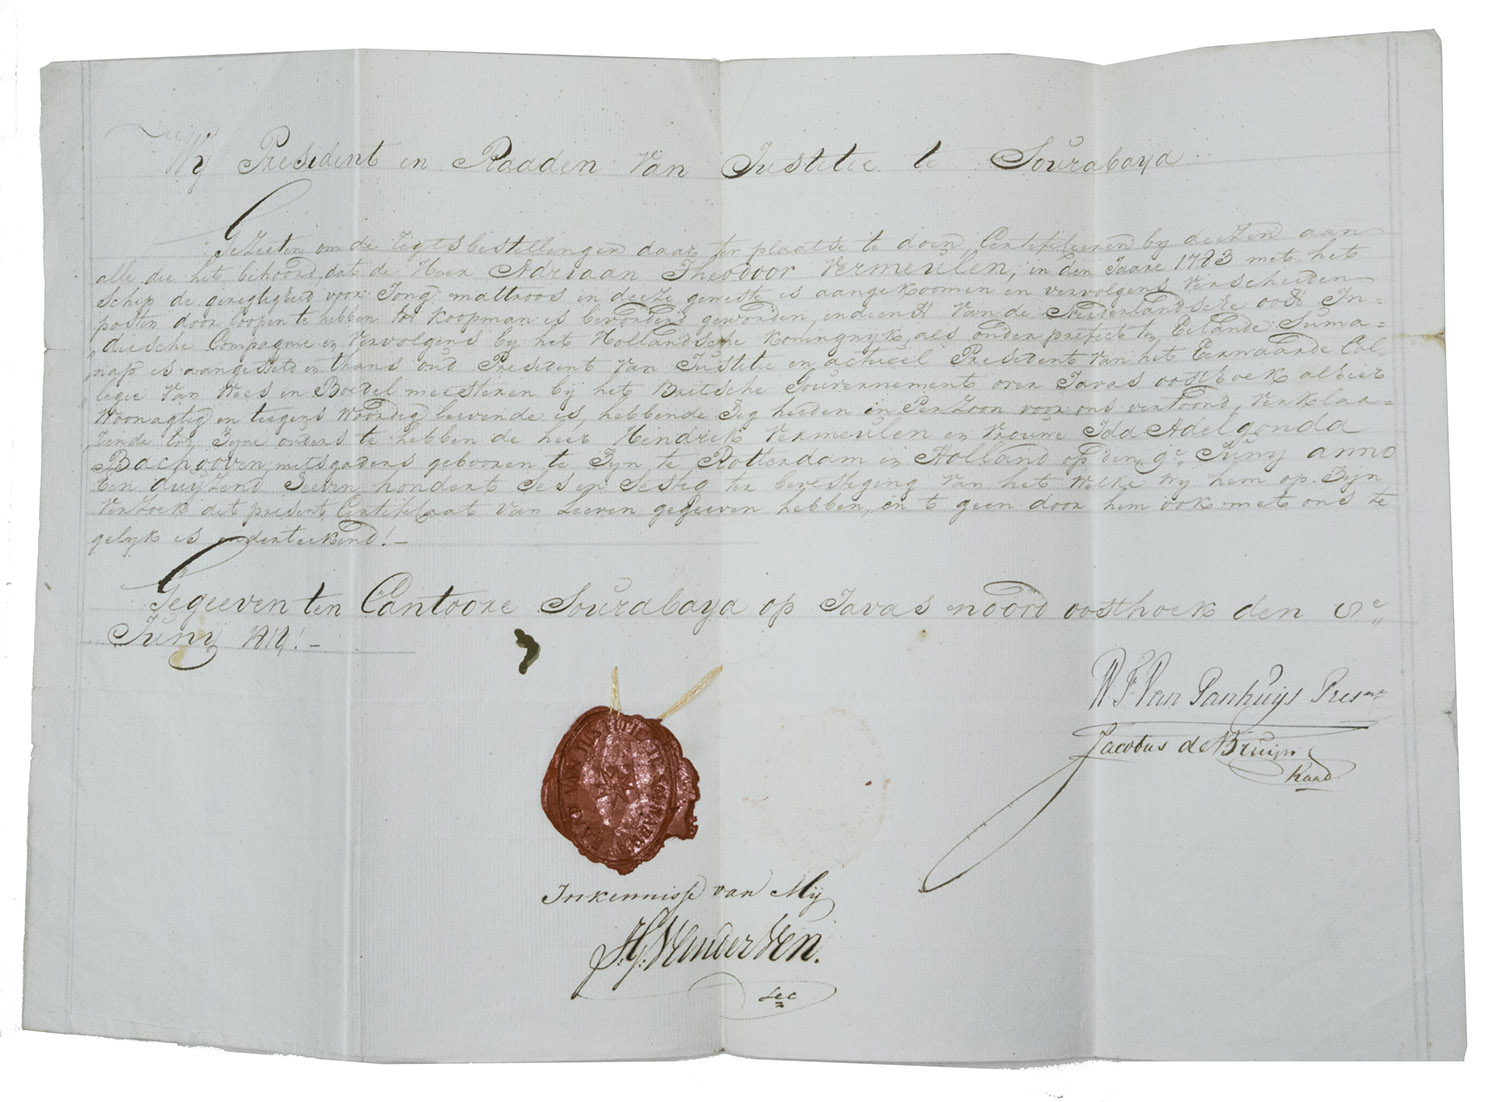 Wij President en Raaden Van Justitie te Sourabaya
Gezeeten om de Regtsbestellingen daar ter plaatse te doen Certificeeren by deezen aan
alle die het behoord, dat de Heer Adriaan Theodoor Vermeulen, in den Jaare 1783 met het
Schip de geregtigheid voor Jong mattroos in deeze geweste is aangekoomen en vervolgens Verscheiden
posten door loopen te hebben tot Koopman is bevordert geworden, indienst Van de Neederlandsche oost In=
„diesche Compagnie en Vervolgens by het Hollandsche Koningryk als onder prefect ten Eilande Suma=
„nap is aangesteld en thans oud President Van Justitie en actueel President Van het Eerwaarde Col=
„legie Van Wees en Boedel meesteren by het Britsche Gouvernement over Javas oosthoek alhier
Woonagtig en teegens Woordig leevende is, hebbende Zig heeden in Perzoon voor ons vertoond, Verklaa=
„rende tot Zyne ouders te hebben de heer Hendrik Vermeulen en Vrouwe Ida Adelgonda
Bachooven, mitsgaders gebooren te Zyn te Rotterdam in Holland op den 9e Juny anno
Een duyzend Zeeven hondert Ses en Sestig ter bevestiging Van het Welke Wy hem op Zyn
Verzoek dit present Certificaat Van Leeven gegeeven hebben, en 't geen door hem ook met ons te
gelyk is onderteekend! –
Gegeeven ten Cantoore Sourabaya op Javas noord oosthoek den
Juny 1812! –
W F Van Panhuys Pres
Jacobus de Bruijn
Raad
RAAD VAN
In kennisse van Mij
H J Vander Ven.
Sec